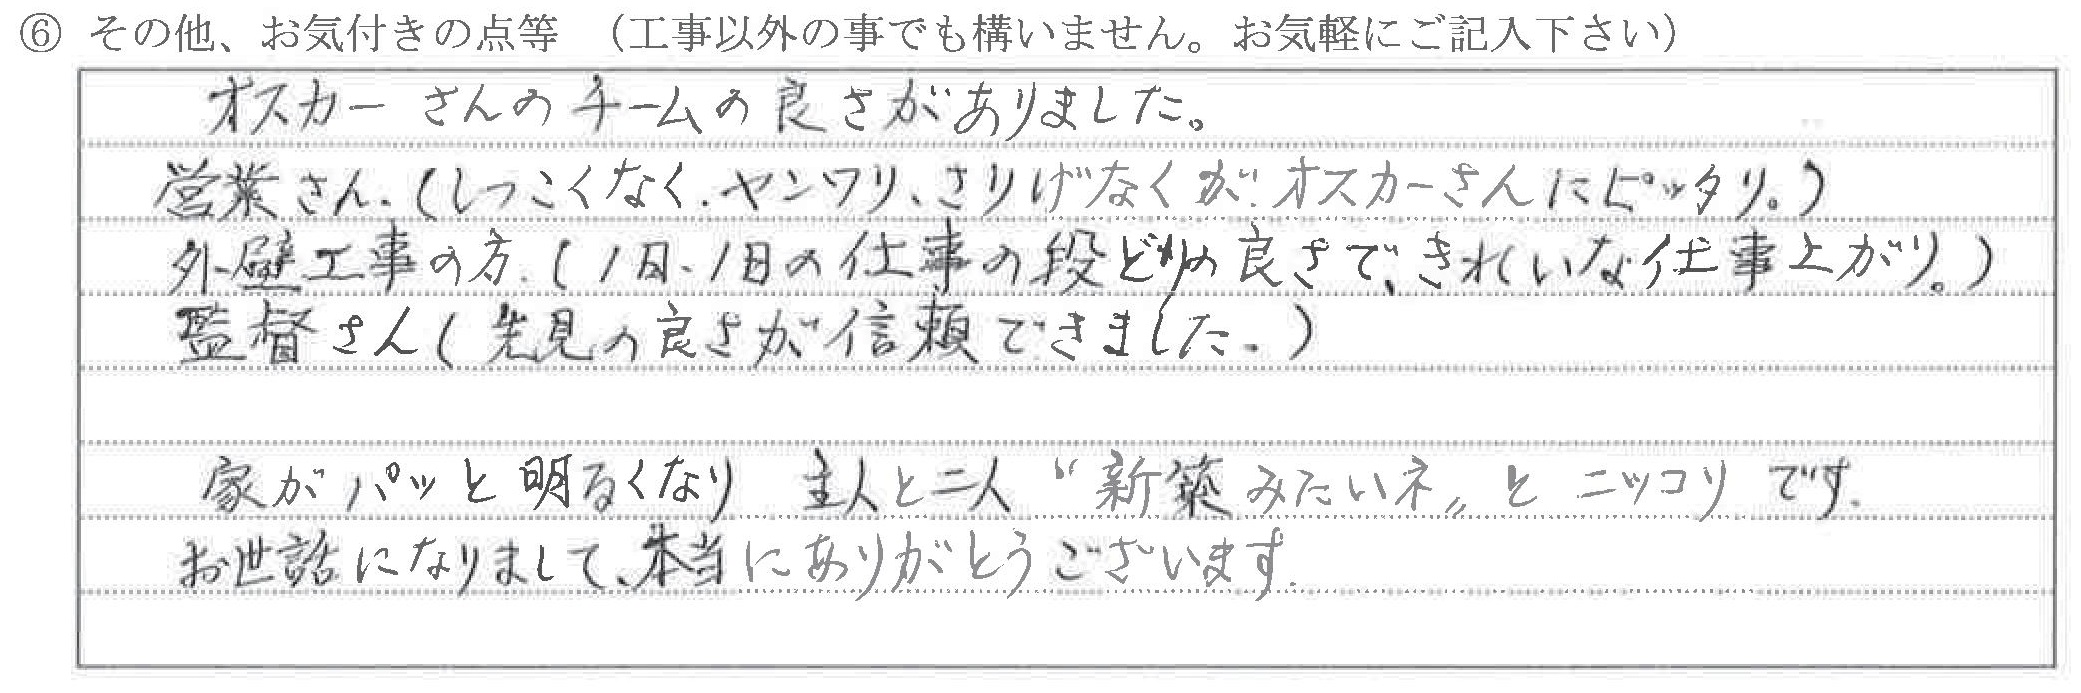 ⑥ その他、お気付きの点等 （工事以外の事でも構いません。お気軽にご記入下さい）
オスカーさんのチームの良さがありました。
営業さん.(しつこくなく.ヤンワリ、さりげなくが.オスカーさんにピッタリ。)
外壁工事の方.(1日、1日の仕事の段どりの良さで、きれいな仕事上がり。)
監督さん(先見の良さが信頼できました.)
家がパッと明るくなり 主人と二人 〝新築みたいネ〟と ニッコリ です.
お世話になりまして、本当にありがとうございます.